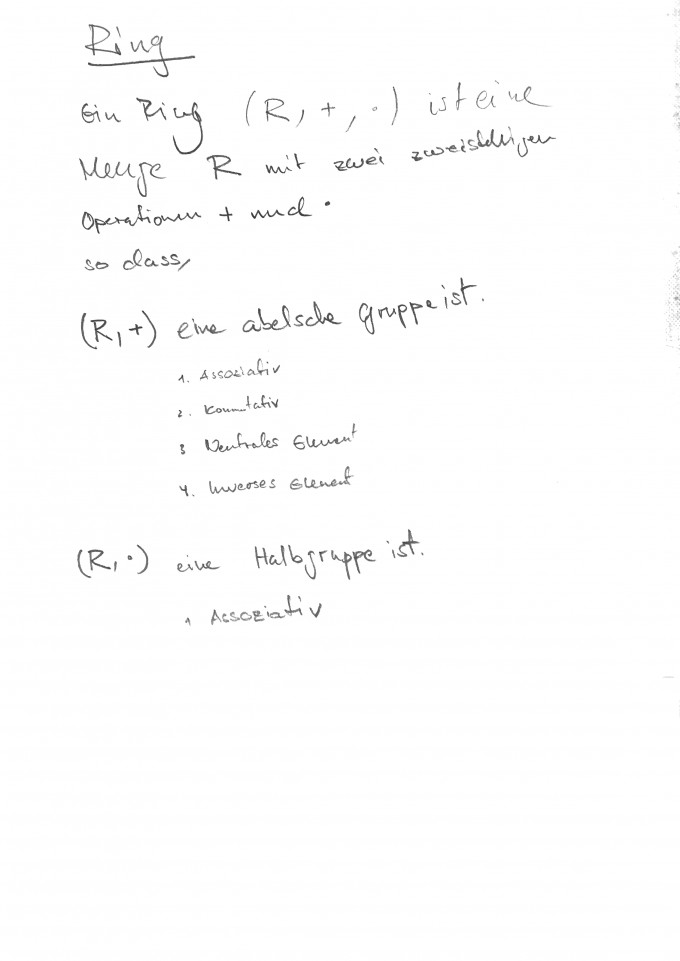 Ring
Ein Ring (R, +, ·) ist eine
Menge R mit zwei zweistelligen
Operationen + und ·
so dass,
(R, +) eine abelsche Gruppe ist.
1. Assoziativ
2. Kommutativ
3 Neutrales Element
4. Inverses Element
(R, ·) eine Halbgruppe ist.
1 Assoziativ